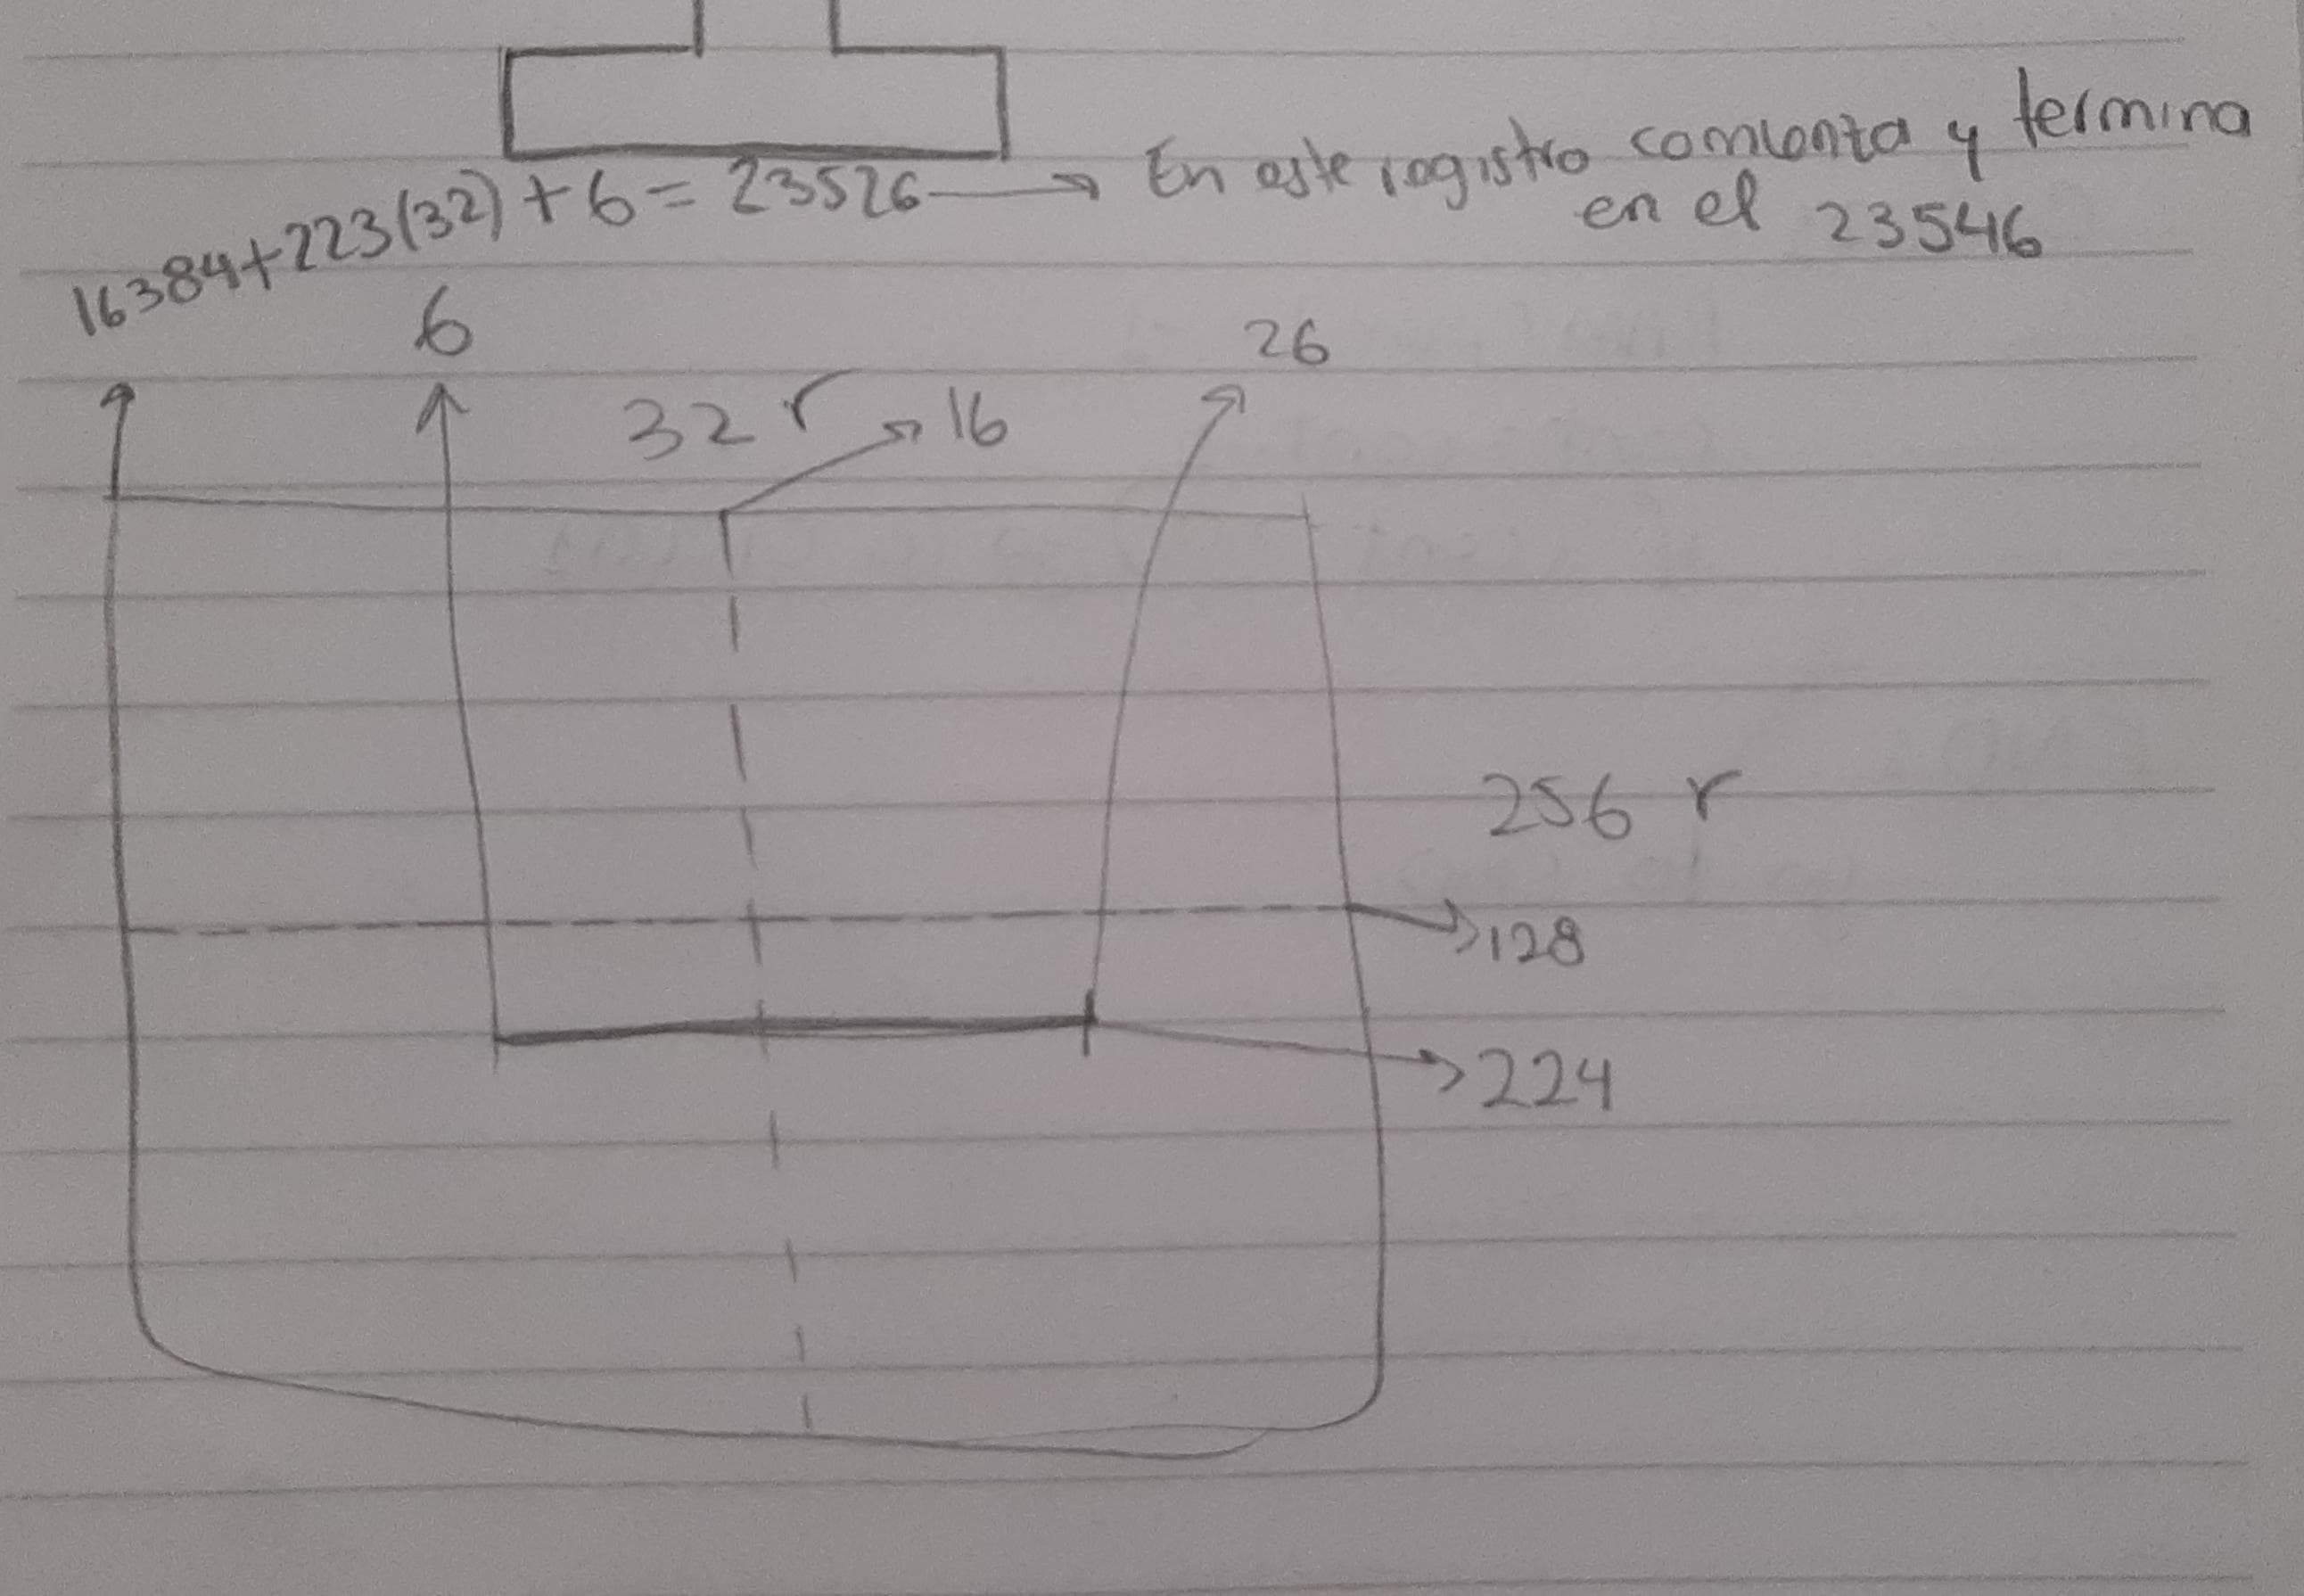 16384+223(32)+6=23526 → En este registro comienza y termina
en el 23546
6
26
32 r
16
256 r
128
224